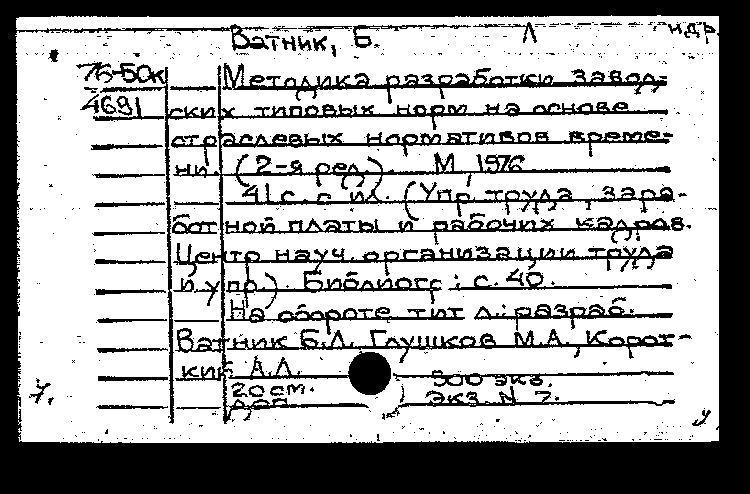 Ватник, Б. Л
76-50к Методика разработки завод-
4691 ских типовых норм на основе
отраслевых нормативов време-
ни. (2-я ред.). М, 1976
41 с. с ил. (Упр труда, зара-
ботной платы и рабочих кадров.
Центр науч. организации труда
и упр). Библиогр: с. 40.
На обороте тит л.: разраб.
Ватник Б.Л., Глушков М.А., Корот-
кий А.Л.
20 см. 500 экз.
7. экз. N 7.